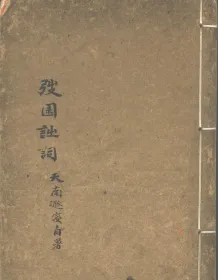 弢園詶詞
天南遯叟自署